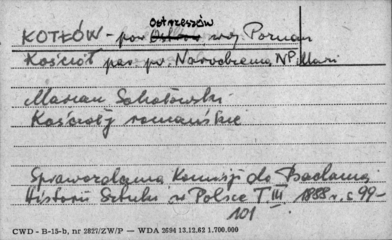 Ostrzeszów
KOTŁÓW - pow Ostrów woj. Poznań
Kościół par. pw. Narodzenia NP Marii
Marian Sokołowski
Kościoły romańskie
Sprawozdania Komisji do Badania
Historii Sztuki w Polsce T III 1888 r. s 99-
101
CWD - B-15-b, nr 2827/ZW/P — WDA 2694 13.12.62 1.700.000